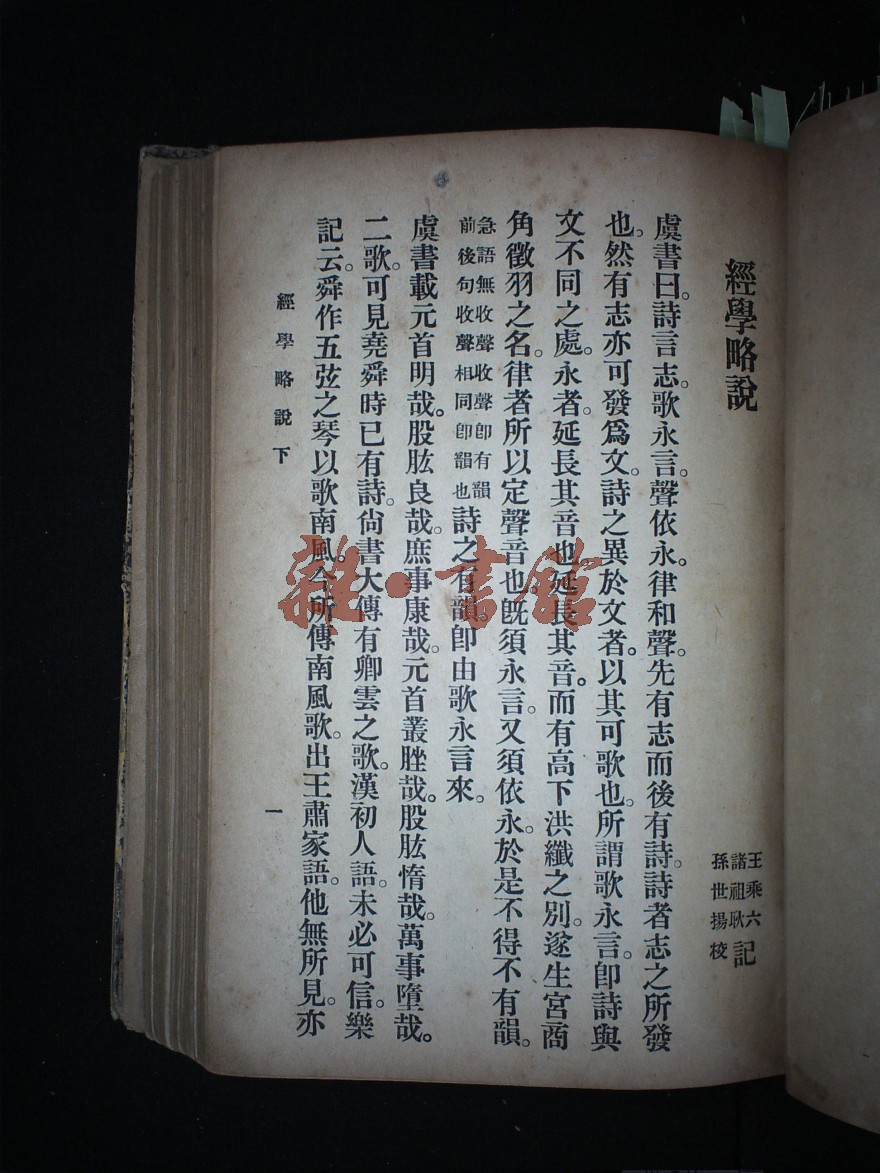 經學略說
王乘六
諸祖耿記
孫世揚校
虞書曰。詩言志。歌永言。聲依永。律和聲。先有志而後有詩。詩者志之所發
也。然有志亦可發爲文。詩之異於文者。以其可歌也。所謂歌永言。卽詩與
文不同之處。永者。延長其音也。延長其音。而有高下洪纖之別。遂生宮商
角徵羽之名。律者所以定聲音也旣須永言。又須依永。於是不得不有韻。
急語無收聲收聲卽有韻
前後句收聲相同卽韻也詩之有韻。卽由歌永言來。
虞書載元首明哉。股肱良哉。庶事康哉。元首叢脞哉。股肱惰哉。萬事墮哉。
二歌。可見堯舜時已有詩。尙書大傳有卿雲之歌。漢初人語。未必可信。樂
記云。舜作五弦之琴以歌南風。今所傳南風歌。出王肅家語。他無所見。亦
經學略說下
一
雜·書館